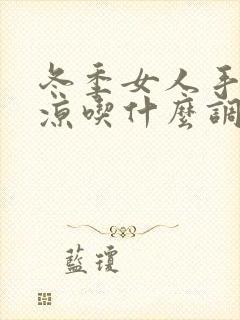 冬季女人手
涼喫什麼調
藍瓊